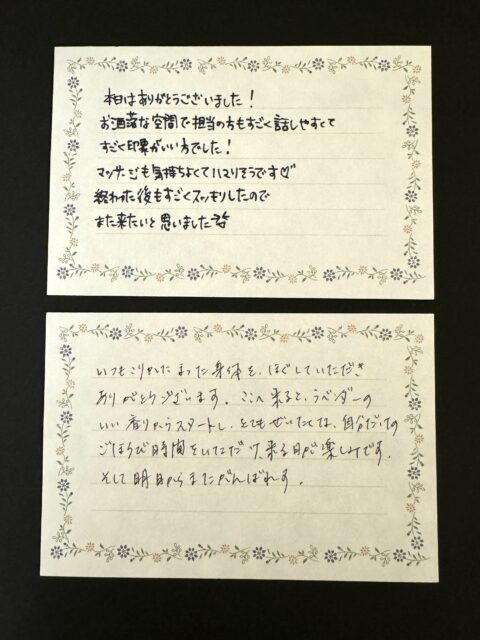 本日はありがとうございました！
お洒落な空間で担当の方もすごく話しやすくて
すごく印象がいい方でした！
マッサージも気持ちよくてハマりそうです♡
終わった後もすごくスッキリしたので
また来たいと思いました
いつもこりかたまった身体を、ほぐしていただき
ありがとうございます。ここへ来ると、ラベンダーの
いい香りからスタートし、とてもぜいたくな、自分だけの
ごほうび時間をいただけ、来る日が楽しみです。
そして明日からまたがんばれます。